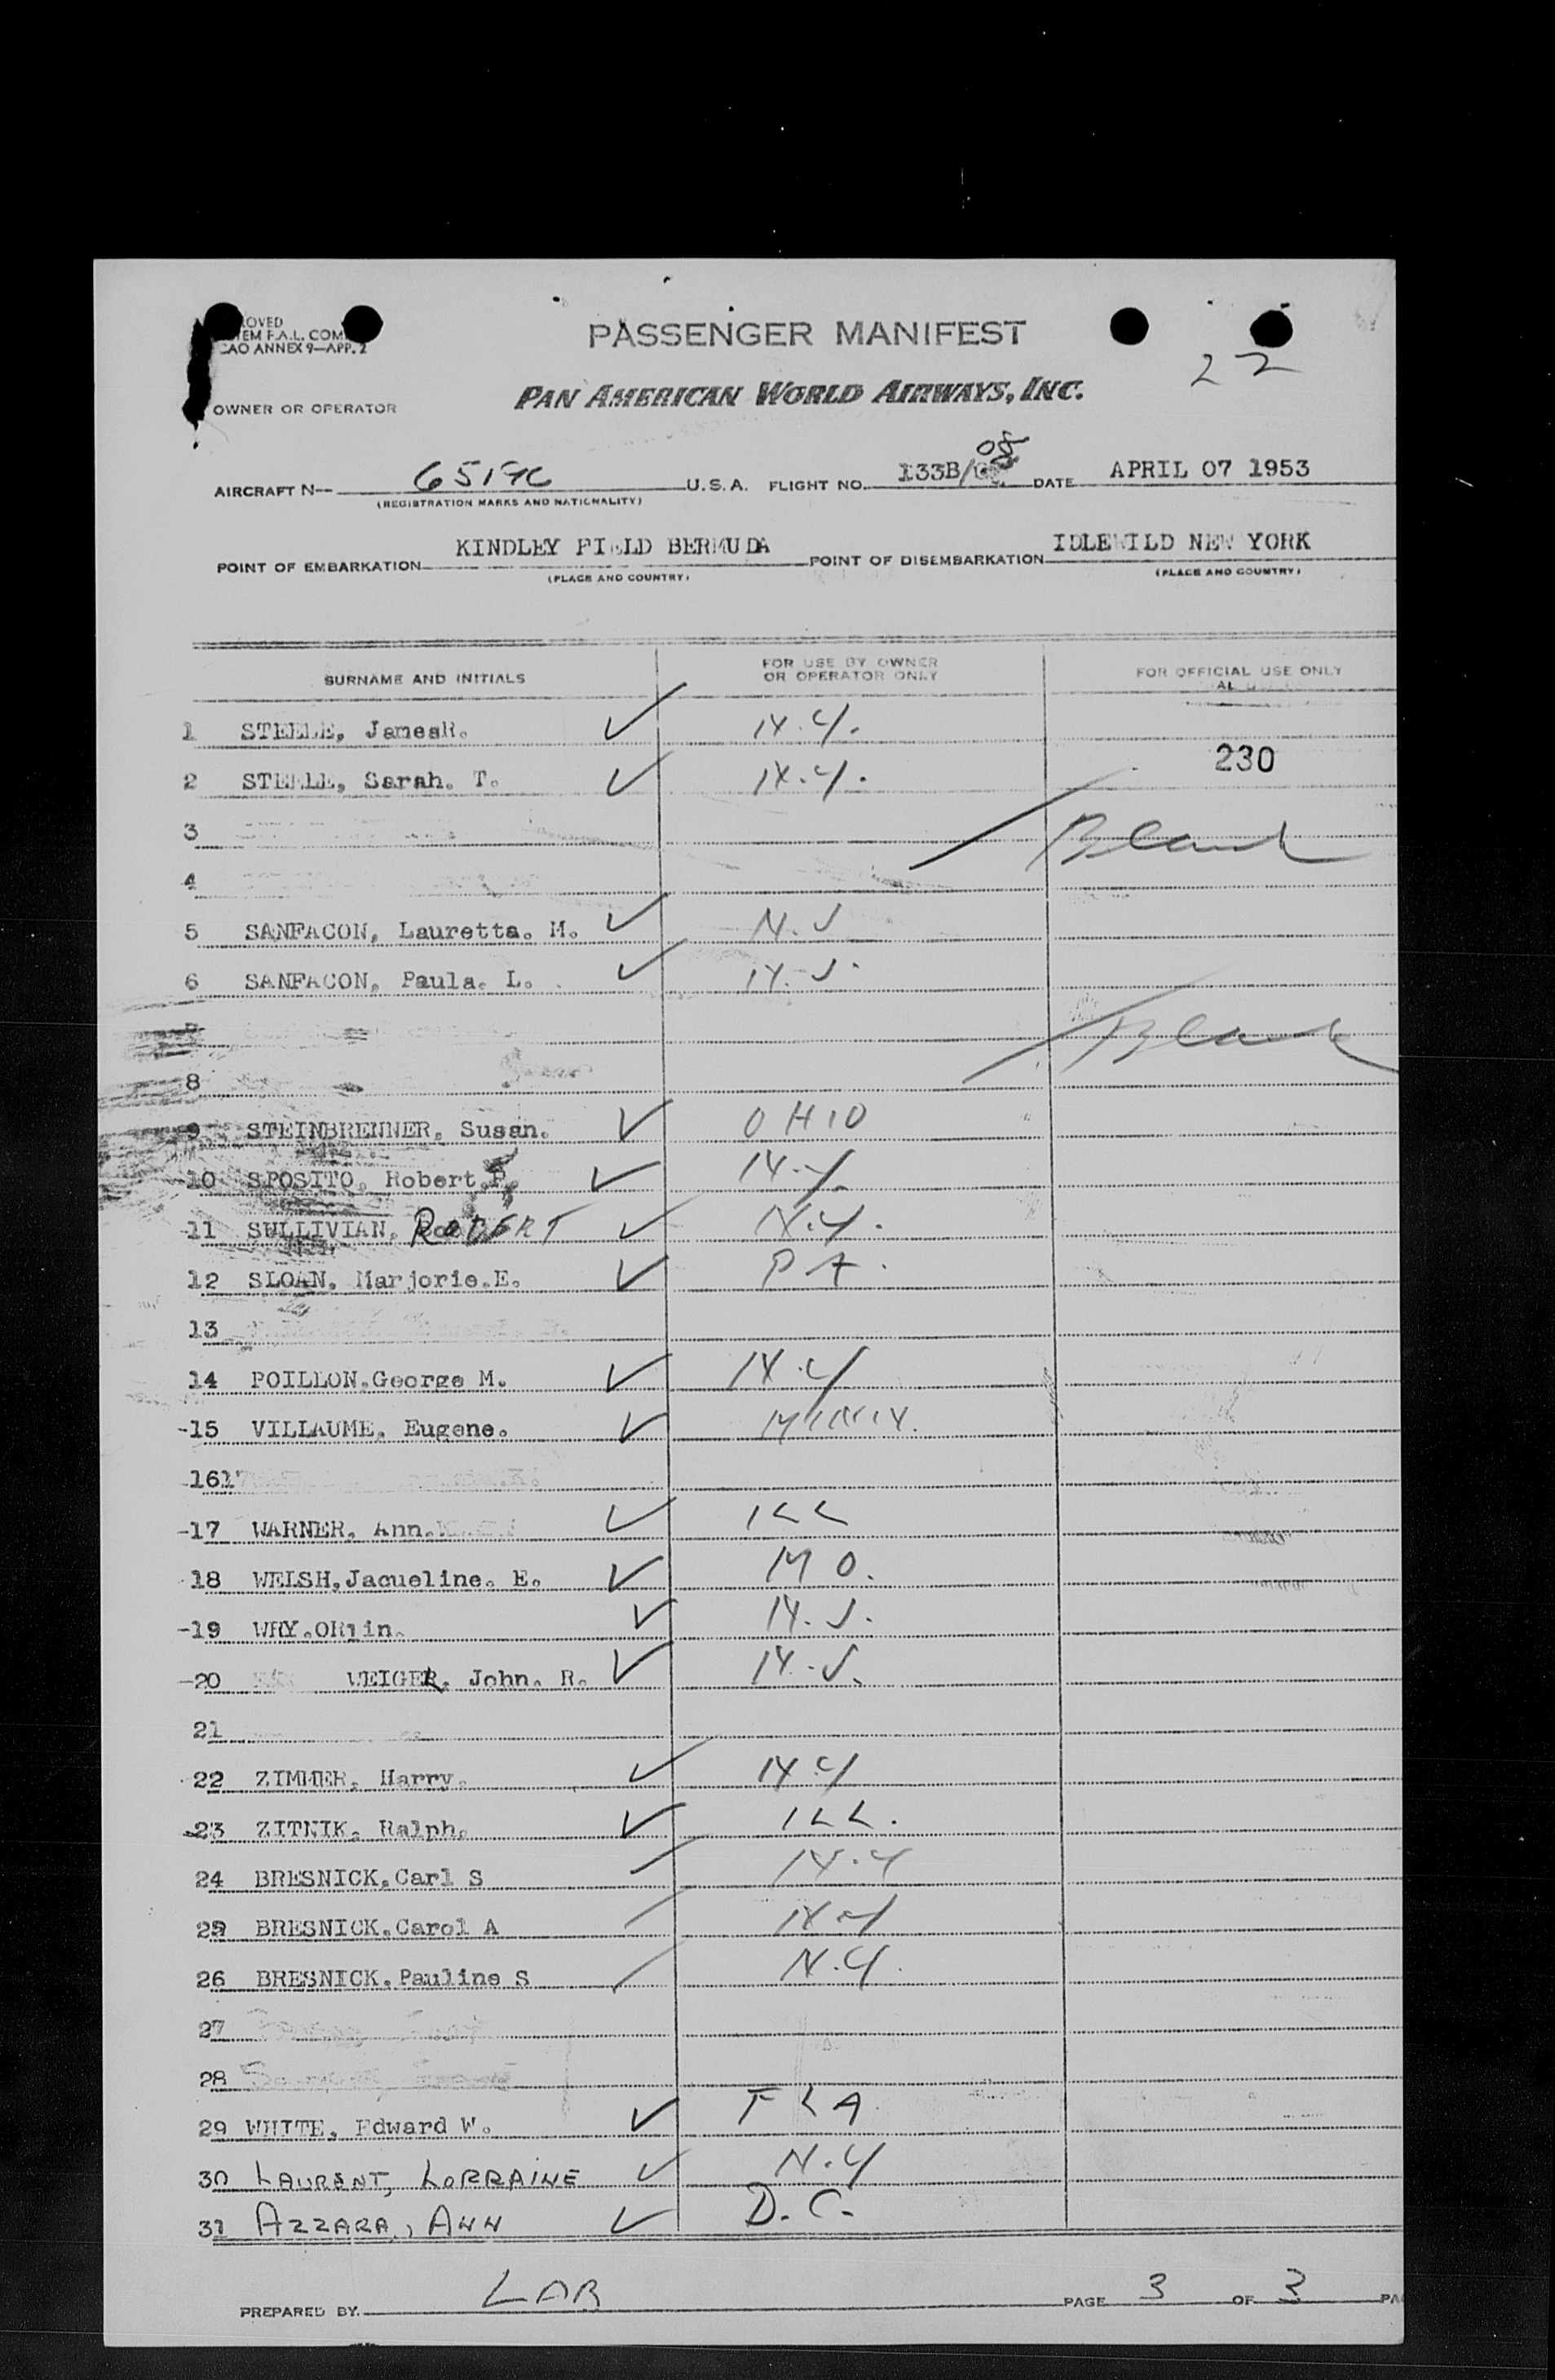 PASSENGER MANIFEST
22
PAN AMERICAN WORLD AIRWAYS, INC.
OVED
TEM F.A.L. COM
CAO ANNEX 9—APP. 2
OWNER OR OPERATOR
AIRCRAFT N— U.S.A. FLIGHT NO. 133B/08 DATE APRIL 07 1953
(REGISTRATION MARKS AND NATIONALITY)
POINT OF EMBARKATION KINDLEY FIELD BERMUDA POINT OF DISEMBARKATION IDLEWILD NEW YORK
(PLACE AND COUNTRY) (PLACE AND COUNTRY)
SURNAME AND INITIALS FOR USE BY OWNER OR OPERATOR ONLY FOR OFFICIAL USE ONLY
1 STEELE, JamesR. ✓ N.Y.
230
2 STEELE, Sarah. T. ✓ N.Y.
3 Blank
4
5 SANFACON, Lauretta. M. ✓ N.J
6 SANFACON, Paula. L. ✓ N.J.
7 Blank
8
9 STEINBRENNER, Susan. ✓ OHIO
10 SPOSITO, Robert.P. ✓ N.Y.
11 SULLIVIAN, ROBERT ✓ N.Y.
12 SLOAN, Marjorie.E. ✓ PA.
13
14 POILLON.George M. ✓ N.Y
15 VILLAUME, Eugene. ✓ MINN.
16
17 WARNER, Ann. ✓ ILL
18 WELSH,Jacueline. E. ✓ MO.
19 WRY.ORlin. ✓ N.J.
20 WEIGER, John. R. ✓ N.J.
21
22 ZIMMER, Harry. ✓ N.Y
23 ZITNIK, Ralph. ✓ ILL.
24 BRESNICK.Carl S N.Y
25 BRESNICK.Carol A N.Y
26 BRESNICK.Pauline S N.Y.
27
28
29 WHITE, Edward W. ✓ FLA
30 LAURENT, LORRAINE ✓ N.Y
31 AZZARA, ANN ✓ D.C.
PREPARED BY. LAR PAGE 3 OF 3 PA